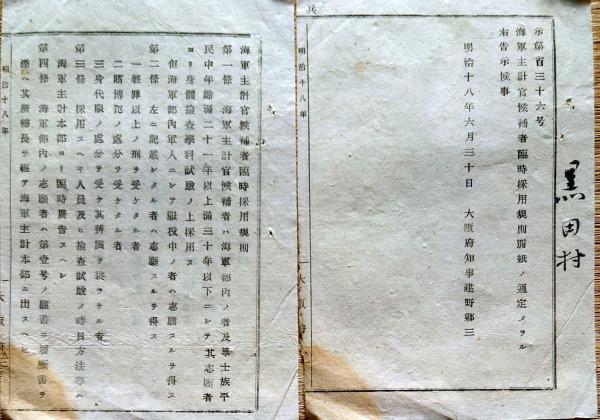 黒田村
示第百三十六号
海軍主計官候補者臨時採用規則別紙ノ通定メラル
右告示候事
明治十八年六月三十日　大阪府知事建野郷三
明治十八年
海軍主計官候補者臨時採用規則
第一條　海軍主計官候補者ハ海軍部内ノ者及華士族平
民中年齢満二十一年以上満三十年以下ニシテ其志願者
ヨリ身體檢査學科試驗ノ上採用ス
但海軍部内軍人ニシテ服役中ノ者ハ志願スルヲ得ス
第二條　左ニ記載シタル者ハ志願スルヲ得ス
一輕罪以上ノ刑ヲ受ケタル者
二賭博犯ノ處分ヲ受ケタル者
三身代限ノ處分ヲ受ケ其辨償ヲ終ヘサル者
第三條　採用スヘキ人員及ヒ檢査試驗ノ時日方法等ハ
海軍主計本部ヨリ臨時廣告スヘシ
第四條　海軍部内ノ志願者ハ第壹号ノ願書ニ履歴書ヲ
添ヘ其所轄長ヲ經テ海軍主計本部ニ出スヘシ
明治十八年